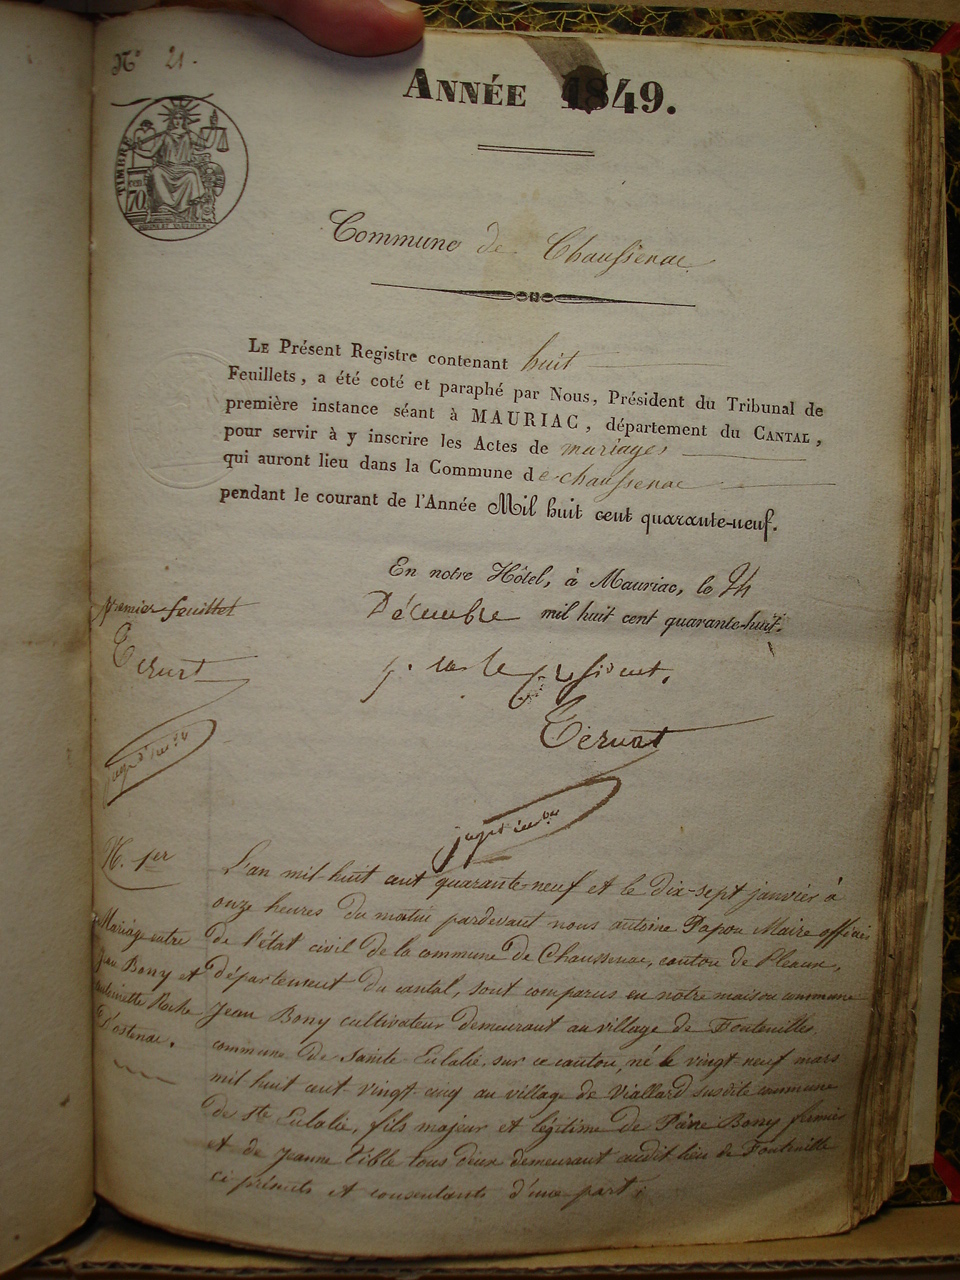 N° 21.
ANNÉE 1849.
TIMBRE
70
Commune de Chaussenac
LE Présent Registre contenant huit
Feuillets, a été coté et paraphé par Nous, Président du Tribunal de
première instance séant à MAURIAC, département du CANTAL,
pour servir à y inscrire les Actes de mariages
qui auront lieu dans la Commune de chaussenac
pendant le courant de l'Année Mil huit cent quarante-neuf.
En notre Hôtel, à Mauriac, le 24
Décembre mil huit cent quarante-huit.
premier feuillet
p. le président,
N. 1er
Mariage entre
Jean Bony et
antoinette Roche
D'ostenac.
L'an mil huit cent quarante-neuf et le dix-sept janvier à
onze heures du matin pardevant nous antoine Papon Maire officier
de l'état civil de la commune de Chaussenac, canton de Pleaux,
département du cantal, sont comparus en notre maison commune
Jean Bony cultivateur demeurant au village de Fonteuilles
commune de Sainte Eulalie, sur ce canton, né le vingt-neuf mars
mil huit cent vingt cinq au village de Viallard susdite commune
de Ste Eulalie, fils majeur et légitime de Pierre Bony fermier
et de Jeanne Rible tous deux demeurant audit lieu de Fonteuille
ci présents et consentants d'une part;